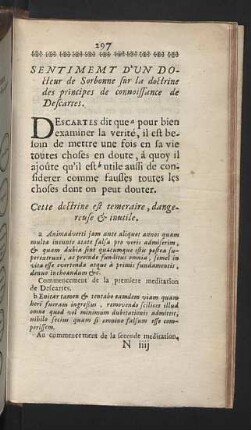 297
SENTIMEMT D'UN DO-
cteur de Sorbonne sur la doctrine
des principes de connoissance de
Descartes.
DESCARTES dit que a pour bien
examiner la verité, il est be-
soin de mettre une fois en sa vie
toutes choses en doute, à quoy il
ajoûte qu'il est b utile aussi de con-
siderer comme fausses toutes les
choses dont on peut douter.
Cette doctrine est temeraire, dange-
reuse & inutile.
a Animadverti jam ante aliquot annos quam
multa ineunte ætate falsa pro veris admiserim,
& quam dubia sint quæcumque istis postea su-
perextruxi, ac proinde funditus omnia, semel in
vita esse evertenda atque à primis fundamentis,
denuo inchoandum &c.
Commencement de la premiere meditation
de Descartes.
b Enitar tamen & tentabo eamdem viam quam
heri fueram ingressus, removendo scilicet illud
omne quod vel minimum dubitationis admittit,
nihilo secius quam si omnino falsum esse com-
perissem.
Au commencement de la seconde meditation,
N iiij